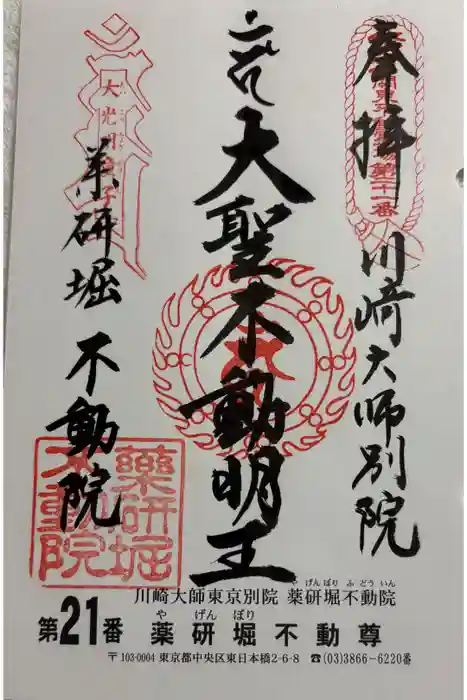 奉拝
川崎大師別院
大聖不動明王
薬研堀 不動院
薬研堀
不動院
川崎大師東京別院 薬研堀不動院
や げん ぼり ふ どう いん
第21番 薬研堀不動尊
や げん ぼり
〒103-0004 東京都中央区東日本橋2-6-8 ☎(03)3866-6220番